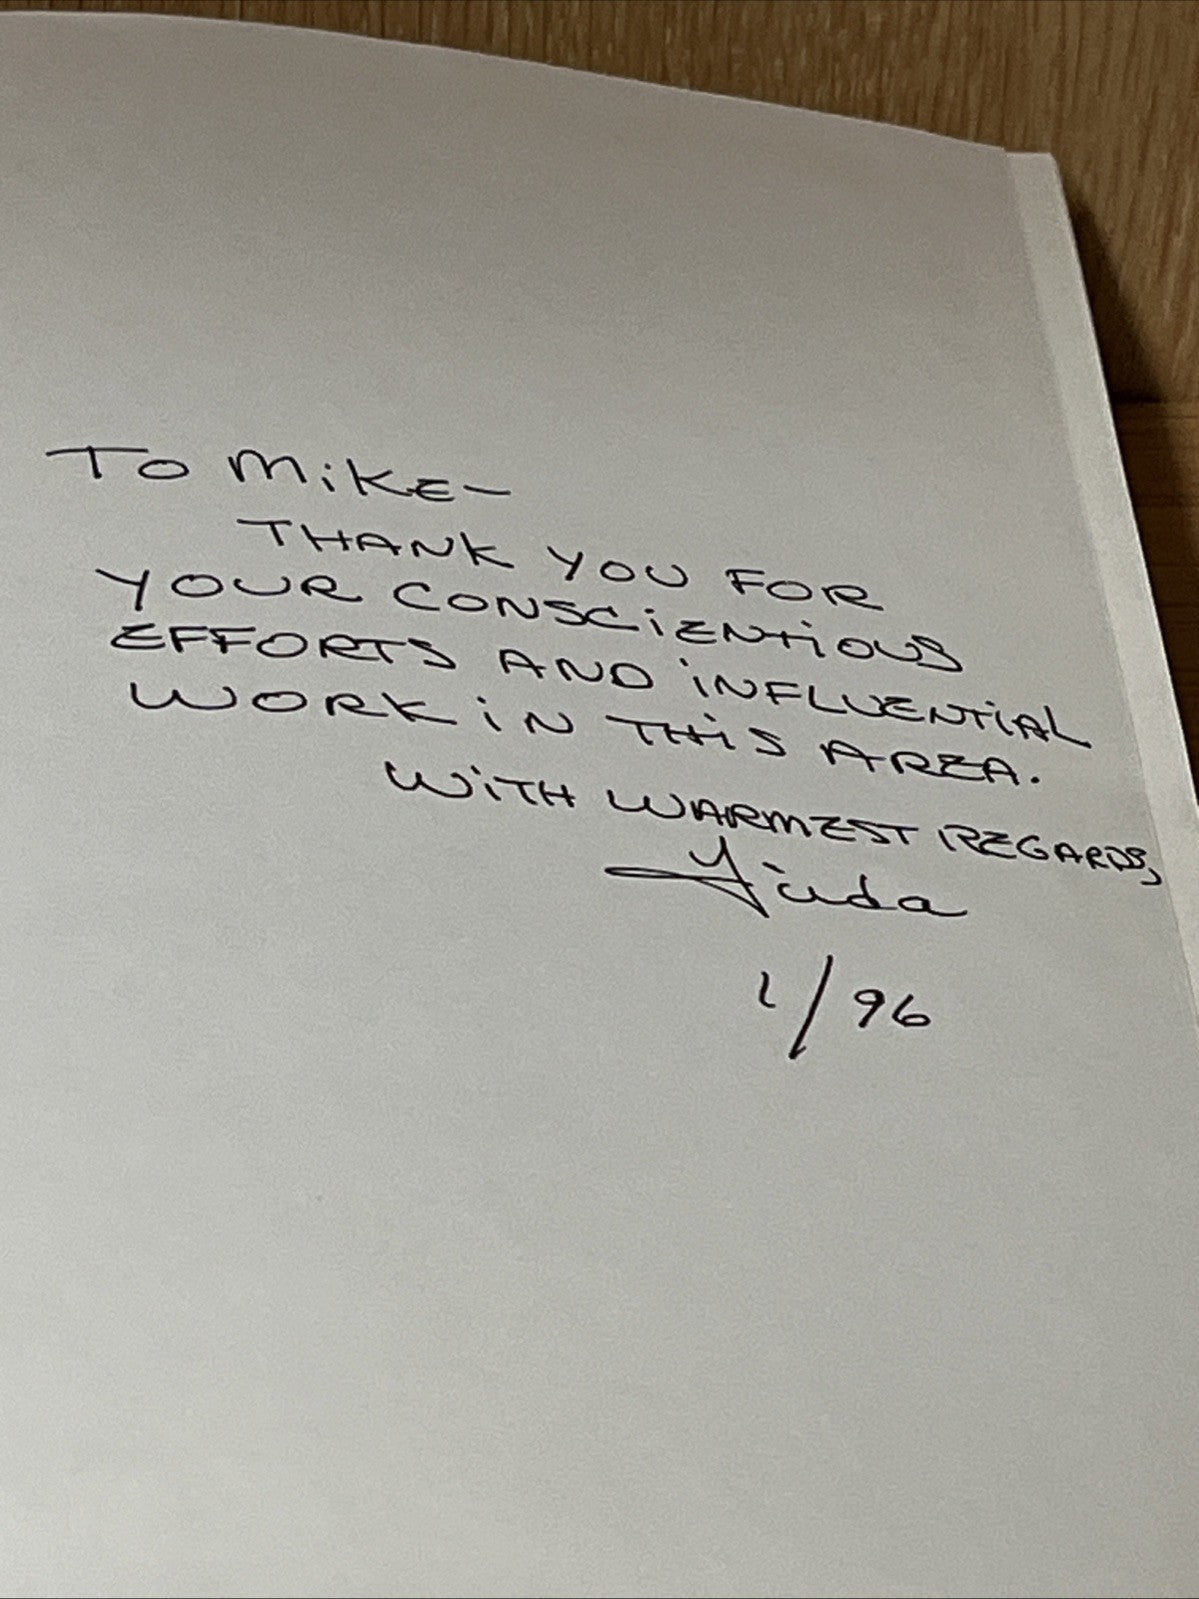 TO MIKE-
THANK YOU FOR
YOUR CONSCIENTIOUS
EFFORTS AND INFLUENTIAL
WORK IN THIS AREA.
WITH WARMEST REGARDS,
1/96